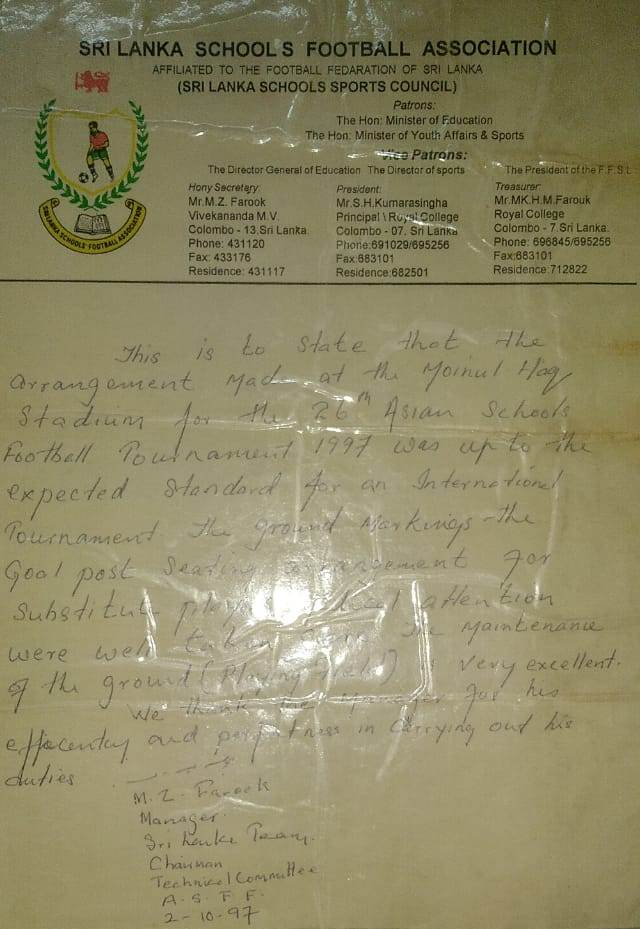 SRI LANKA SCHOOL'S FOOTBALL ASSOCIATION
AFFILIATED TO THE FOOTBALL FEDARATION OF SRI LANKA
(SRI LANKA SCHOOLS SPORTS COUNCIL)
Patrons:
The Hon: Minister of Education
The Hon: Minister of Youth Affairs & Sports
Vice Patrons:
The Director General of Education The Director of sports The President of the F.F.S.L.
Hony Secretary:
Mr.M.Z. Farook
Vivekananda M.V.
Colombo - 13.Sri Lanka.
Phone: 431120
Fax: 433176
Residence: 431117
President:
Mr.S.H.Kumarasingha
Principal \ Royal College
Colombo - 07. Sri Lanka
Phone:691029/695256
Fax:683101
Residence:682501
Treasurer:
Mr.MK.H.M.Farouk
Royal College
Colombo - 7.Sri Lanka.
Phone: 696845/695256
Fax:683101
Residence:712822
SRI LANKA SCHOOLS' FOOTBALL ASSOCIATION
This is to state that the
arrangement made at the Moinul Haq
Stadium for the 26th Asian Schools
Football Tournament 1997 was up to the
expected Standard for an International
Tournament The ground Markings - the
Goal post Seating arrangement for
Substitute attention
were well taken The Maintenance
of the ground (Playing field) is very excellent.
We thank the Manager for his
efficentcy and in Carrying out his
duties
M. Z. Farook
Manager.
Sri Lanka Team.
Chairman
Technical Committee
A. S. F. F.
2-10-97